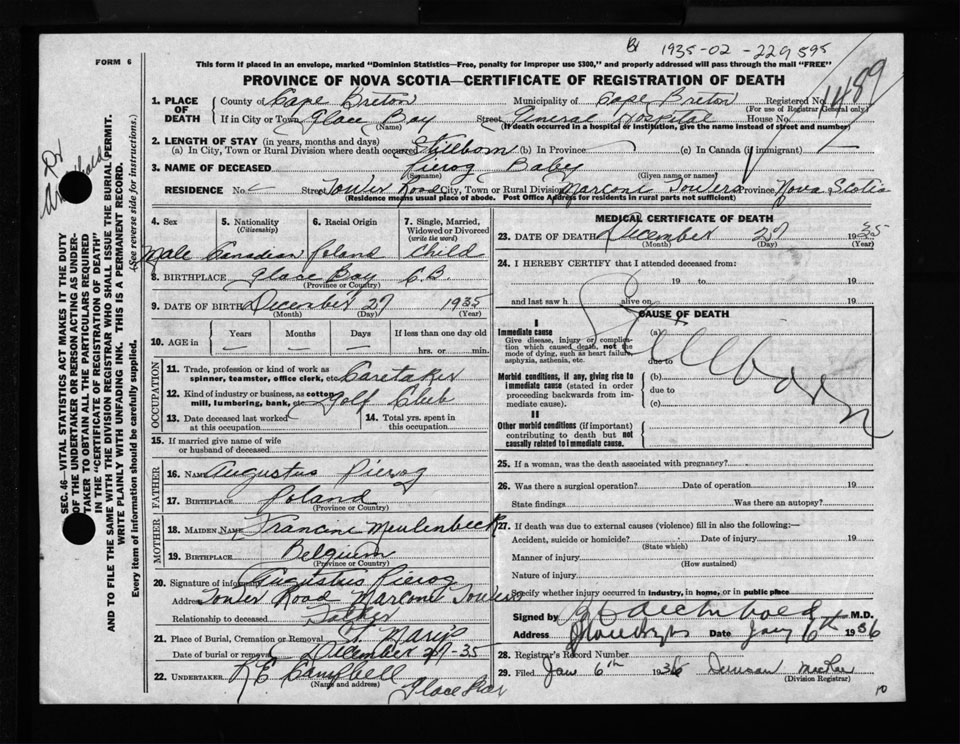 1935-02-229595
FORM 6
This form if placed in an envelope, marked "Dominion Statistics—Free, penalty for improper use $300," and properly addressed will pass through the mail "FREE"
PROVINCE OF NOVA SCOTIA—CERTIFICATE OF REGISTRATION OF DEATH
1489
1. PLACE OF DEATH
County of Cape Breton Municipality of Cape Breton Registered No.
(For use of Registrar General only.)
If in City or Town Glace Bay Street General Hospital House No.
(Name) (If death occurred in a hospital or institution, give the name instead of street and number)
2. LENGTH OF STAY (in years, months and days)
(a) In City, Town or Rural Division where death occurred Stillborn (b) In Province (c) In Canada (if immigrant)
3. NAME OF DECEASED Pierog Baby
(Surname) (Given name or names)
RESIDENCE No. Street Tower Road City, Town or Rural Division Marconi Towers Province Nova Scotia
(Residence means usual place of abode. Post Office Address for residents in rural parts not sufficient)
4. Sex
Male
5. Nationality (Citizenship)
Canadian
6. Racial Origin
Poland
7. Single, Married, Widowed or Divorced (write the word)
Child
8. BIRTHPLACE Glace Bay C.B.
(Province or Country)
9. DATE OF BIRTH December 27 1935
(Month) (Day) (Year)
10. AGE in Years Months Days If less than one day old
hrs. or min.
OCCUPATION
11. Trade, profession or kind of work as
spinner, teamster, office clerk, etc. Caretaker
12. Kind of industry or business, as cotton
mill, lumbering, bank, etc. Golf Club
13. Date deceased last worked at this occupation
14. Total yrs. spent in this occupation
15. If married give name of wife
or husband of deceased
FATHER
16. NAME Augustus Pierog
17. BIRTHPLACE Poland
(Province or Country)
MOTHER
18. MAIDEN NAME Francine Meulenbeck
19. BIRTHPLACE Belguim
(Province or Country)
20. Signature of informant Augustus Pierog
Address Tower Road Marconi Towers
Relationship to deceased Father
21. Place of Burial, Cremation or Removal St. Mary's
Date of burial or removal December 27-35
22. UNDERTAKER R E Campbell
(Name and address)
Glace Bay
MEDICAL CERTIFICATE OF DEATH
23. DATE OF DEATH December 27 1935
(Month) (Day) (Year)
24. I HEREBY CERTIFY that I attended deceased from:
19 to 19
and last saw h alive on 19
CAUSE OF DEATH
I
Immediate cause
Give disease, injury or complication which caused death, not the mode of dying, such as heart failure, asphyxia, asthenia, etc.
(a)
due to
Stillborn
Morbid conditions, if any, giving rise to immediate cause (stated in order proceeding backwards from immediate cause).
(b)
due to
(c)
II
Other morbid conditions (if important) contributing to death but not causally related to immediate cause.
25. If a woman, was the death associated with pregnancy?
26. Was there a surgical operation? Date of operation 19
State findings Was there an autopsy?
27. If death was due to external causes (violence) fill in also the following:—
Accident, suicide or homicide? Date of injury 19
(State which)
Manner of injury
(How sustained)
Nature of injury
Specify whether injury occurred in industry, in home, or in public place
Signed by M.D.
Address Date Jany 6th 1936
28. Registrar's Record Number
29. Filed Jan 6th 1936 Duncan MacRae
(Division Registrar)
10
SEC. 46—VITAL STATISTICS ACT MAKES IT THE DUTY
OF THE UNDERTAKER OR PERSON ACTING AS UNDERTAKER TO OBTAIN ALL THE PARTICULARS REQUIRED
IN THE "CERTIFICATE OF REGISTRATION OF DEATH"
AND TO FILE THE SAME WITH THE DIVISION REGISTRAR WHO SHALL ISSUE THE BURIAL PERMIT.
WRITE PLAINLY WITH UNFADING INK. THIS IS A PERMANENT RECORD.
Every item of information should be carefully supplied. (See reverse side for instructions.)